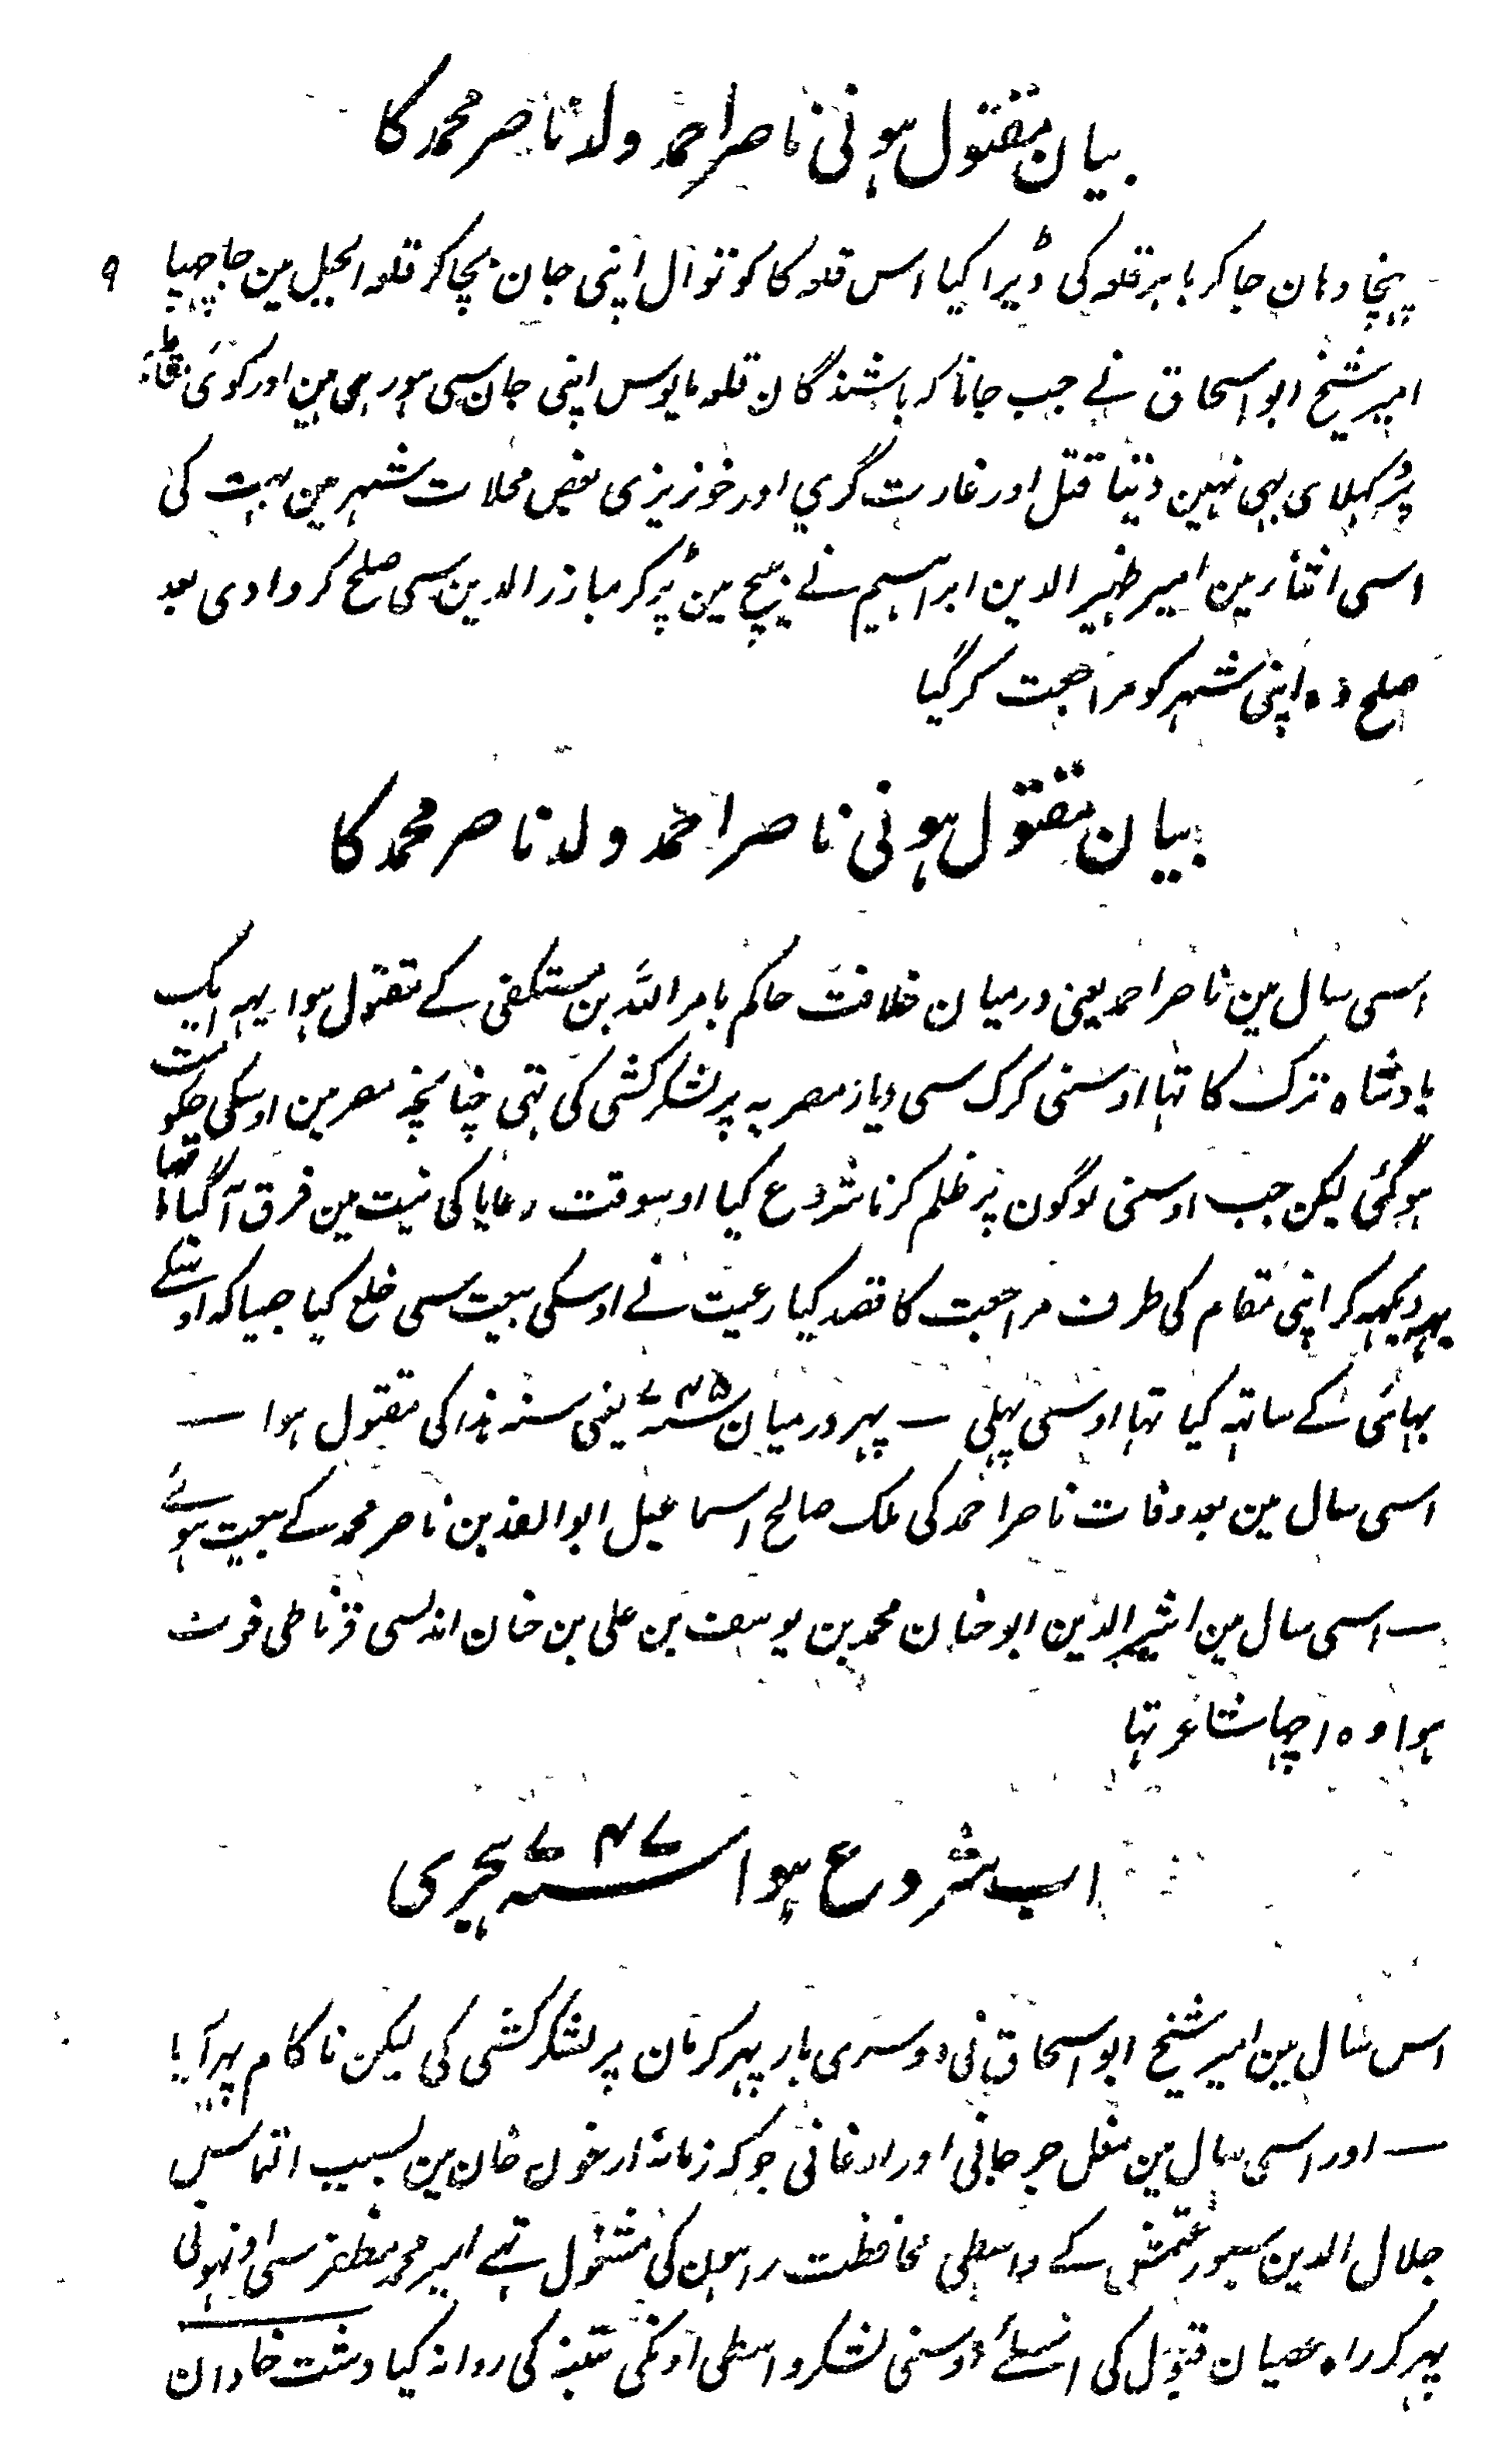 بیان مقتول ہونی ناصر احمد ولد ناصر محمد کا
۹
پہنچا وہان جا کر باہر قلعہ کی ڈیرا کیا اس قلعہ کا کوتوال اپنی جان بچا کر قلعہ الجبل مین جا چھپا
امیر شیخ ابو اسحاق نے جب جانا کہ باشندگان قلعہ مایوس اپنی جان سی ہو رہی ہین اور کوئی
پر دکہلای بہی نہین دیتا قتل اور غارت گری اور خونریزی بعض محلات شہر مین بہت کی
اسی اثناء مین امیر ظہیر الدین ابراہیم نے بیچ مین پڑ کر مبارز الدین سی صلح کروا دی بعد
صلح وہ اپنی شہر کو مراجعت کر گیا
بیان مقتول ہونی ناصر احمد ولد ناصر محمد کا
اسی سال مین ناصر احمد یعنی درمیان خلافت حاکم بامر اللہ بن مستکفی کے مقتول ہوا یہہ ایک
بادشاہ ترک کا تہا اوسنی کرک سی دیار مصریہ پر لشکر کشی کی تہی چنانچہ مصر مین اوسکی حکومت
ہو گئی لیکن جب اوسنی لوگون پر ظلم کرنا شروع کیا اوسوقت رعایا کی نیت مین فرق آ گیا تہا
یہہ دیکہہ کر اپنی مقام کی طرف مراجعت کا قصد کیا رعیت نے اوسکی بیعت سی خلع کیا جیسا کہ اوسکے
بہائی کے ساتہہ کیا تہا اوسنی پہلی ــ پہر درمیان ۷۴۵ یعنی سنہ ہذا کی مقتول ہوا ــ
اسی سال مین بعد وفات ناصر احمد کی ملک صالح اسماعیل ابو الفدا بن ناصر محمد کے بیعت ہوئے
ــ اسی سال مین اثیر الدین ابو حنان محمد بن یوسف بن علی بن حنان اندلسی قرناطی فوت
ہوا وہ اچہا شاعر تہا
اب شروع ہوا ۷۴۷ ہجری
اس سال مین امیر شیخ ابو اسحاق نی دوسری بار پہر کرمان پر لشکر کشی کی لیکن ناکام پہر آیا
ــ اور اسی سال مین مغل جرجانی اور اوغانی جو کہ زمانہ ارغون خان مین بسبب التماس
جلال الدین سیورغتمش کے واسطی محافظت راہون کی مشغول تہے امیر محمد مظفر سی اونہونی
پہر کر راہ عصیان قبول کی اسلئے اوسنی لشکر واسطی اونکی تنبیہ کی روانہ کیا دشت خاوران